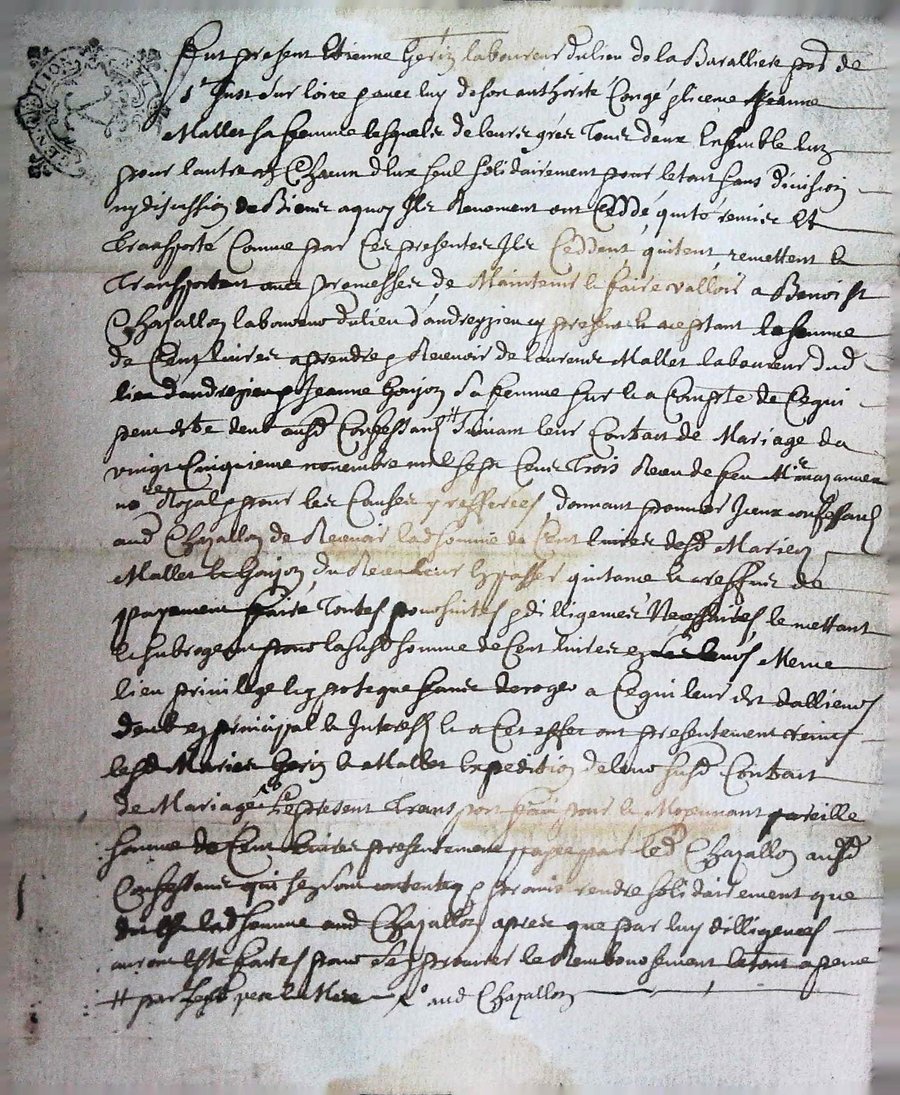 fut present Etienne Gerin laboureur du lieu de la Baralliere par de
St Just sur loire pour luy de son authorité Congé & licence Jeanne
Mallet sa femme lesquels de leurs grés Tous deux Ensemble lun
pour lautre & Chacun deux seul solidairement pour le tout sans division
ny discussion de Biens a quoy Ils Renoncent ont Ceddé quité remis et
Transporté Comme par Ces presentes Ils Ceddent quitent remettent &
Transportent avec promesses de Maintenir & faire valloir a Benoist
Chazallon laboureur du lieu d'andrezieu cy present & aceptant la somme
de Cent livres a prendre & Recevoir de laurens Mallet laboureur dud
lieu dandrezieu & Jeanne Goujon sa femme sur & a Compte de Ce qui
peut estre deub ausd Confessants # suivant leur Contrat de Mariage du
vingt Cinquieme novembre mil sept Cens Trois Receu de feu Mre
nore Royal & pour les Causes y refferées, donnant pouvoir Iceux confessants
aud Chazallon de Recevoir lad somme de Cent livres desd Mariés
Mallet & Goujon du Receu leur En passer quitance & a reffus de
payement faire Toutes poursuites & dilligences Necessaires le mettant
& subrogeant pour la susd somme de Cent livres en Meme
lieu privilege hypoteque sans deroger a Ce qui leur est dallieurs
deub en principal & Interests & a Cet effet ont presentement remis
lesd Mariés Gerin & Mallet Expedition de leur susd Contrat
de Mariage Le present Transport fait pour & Moyennant pareille
somme de Cent livres presentement payée par led Chazallon ausd
Confessans qui sen sont contentés & promis rendre solidairement que
lad somme aud Chazallon apres que par luy dilligences
auront Esté faites pour sen procurer le Remboursement le tout a peine
# par lesd pere & Mere aud Chazallon